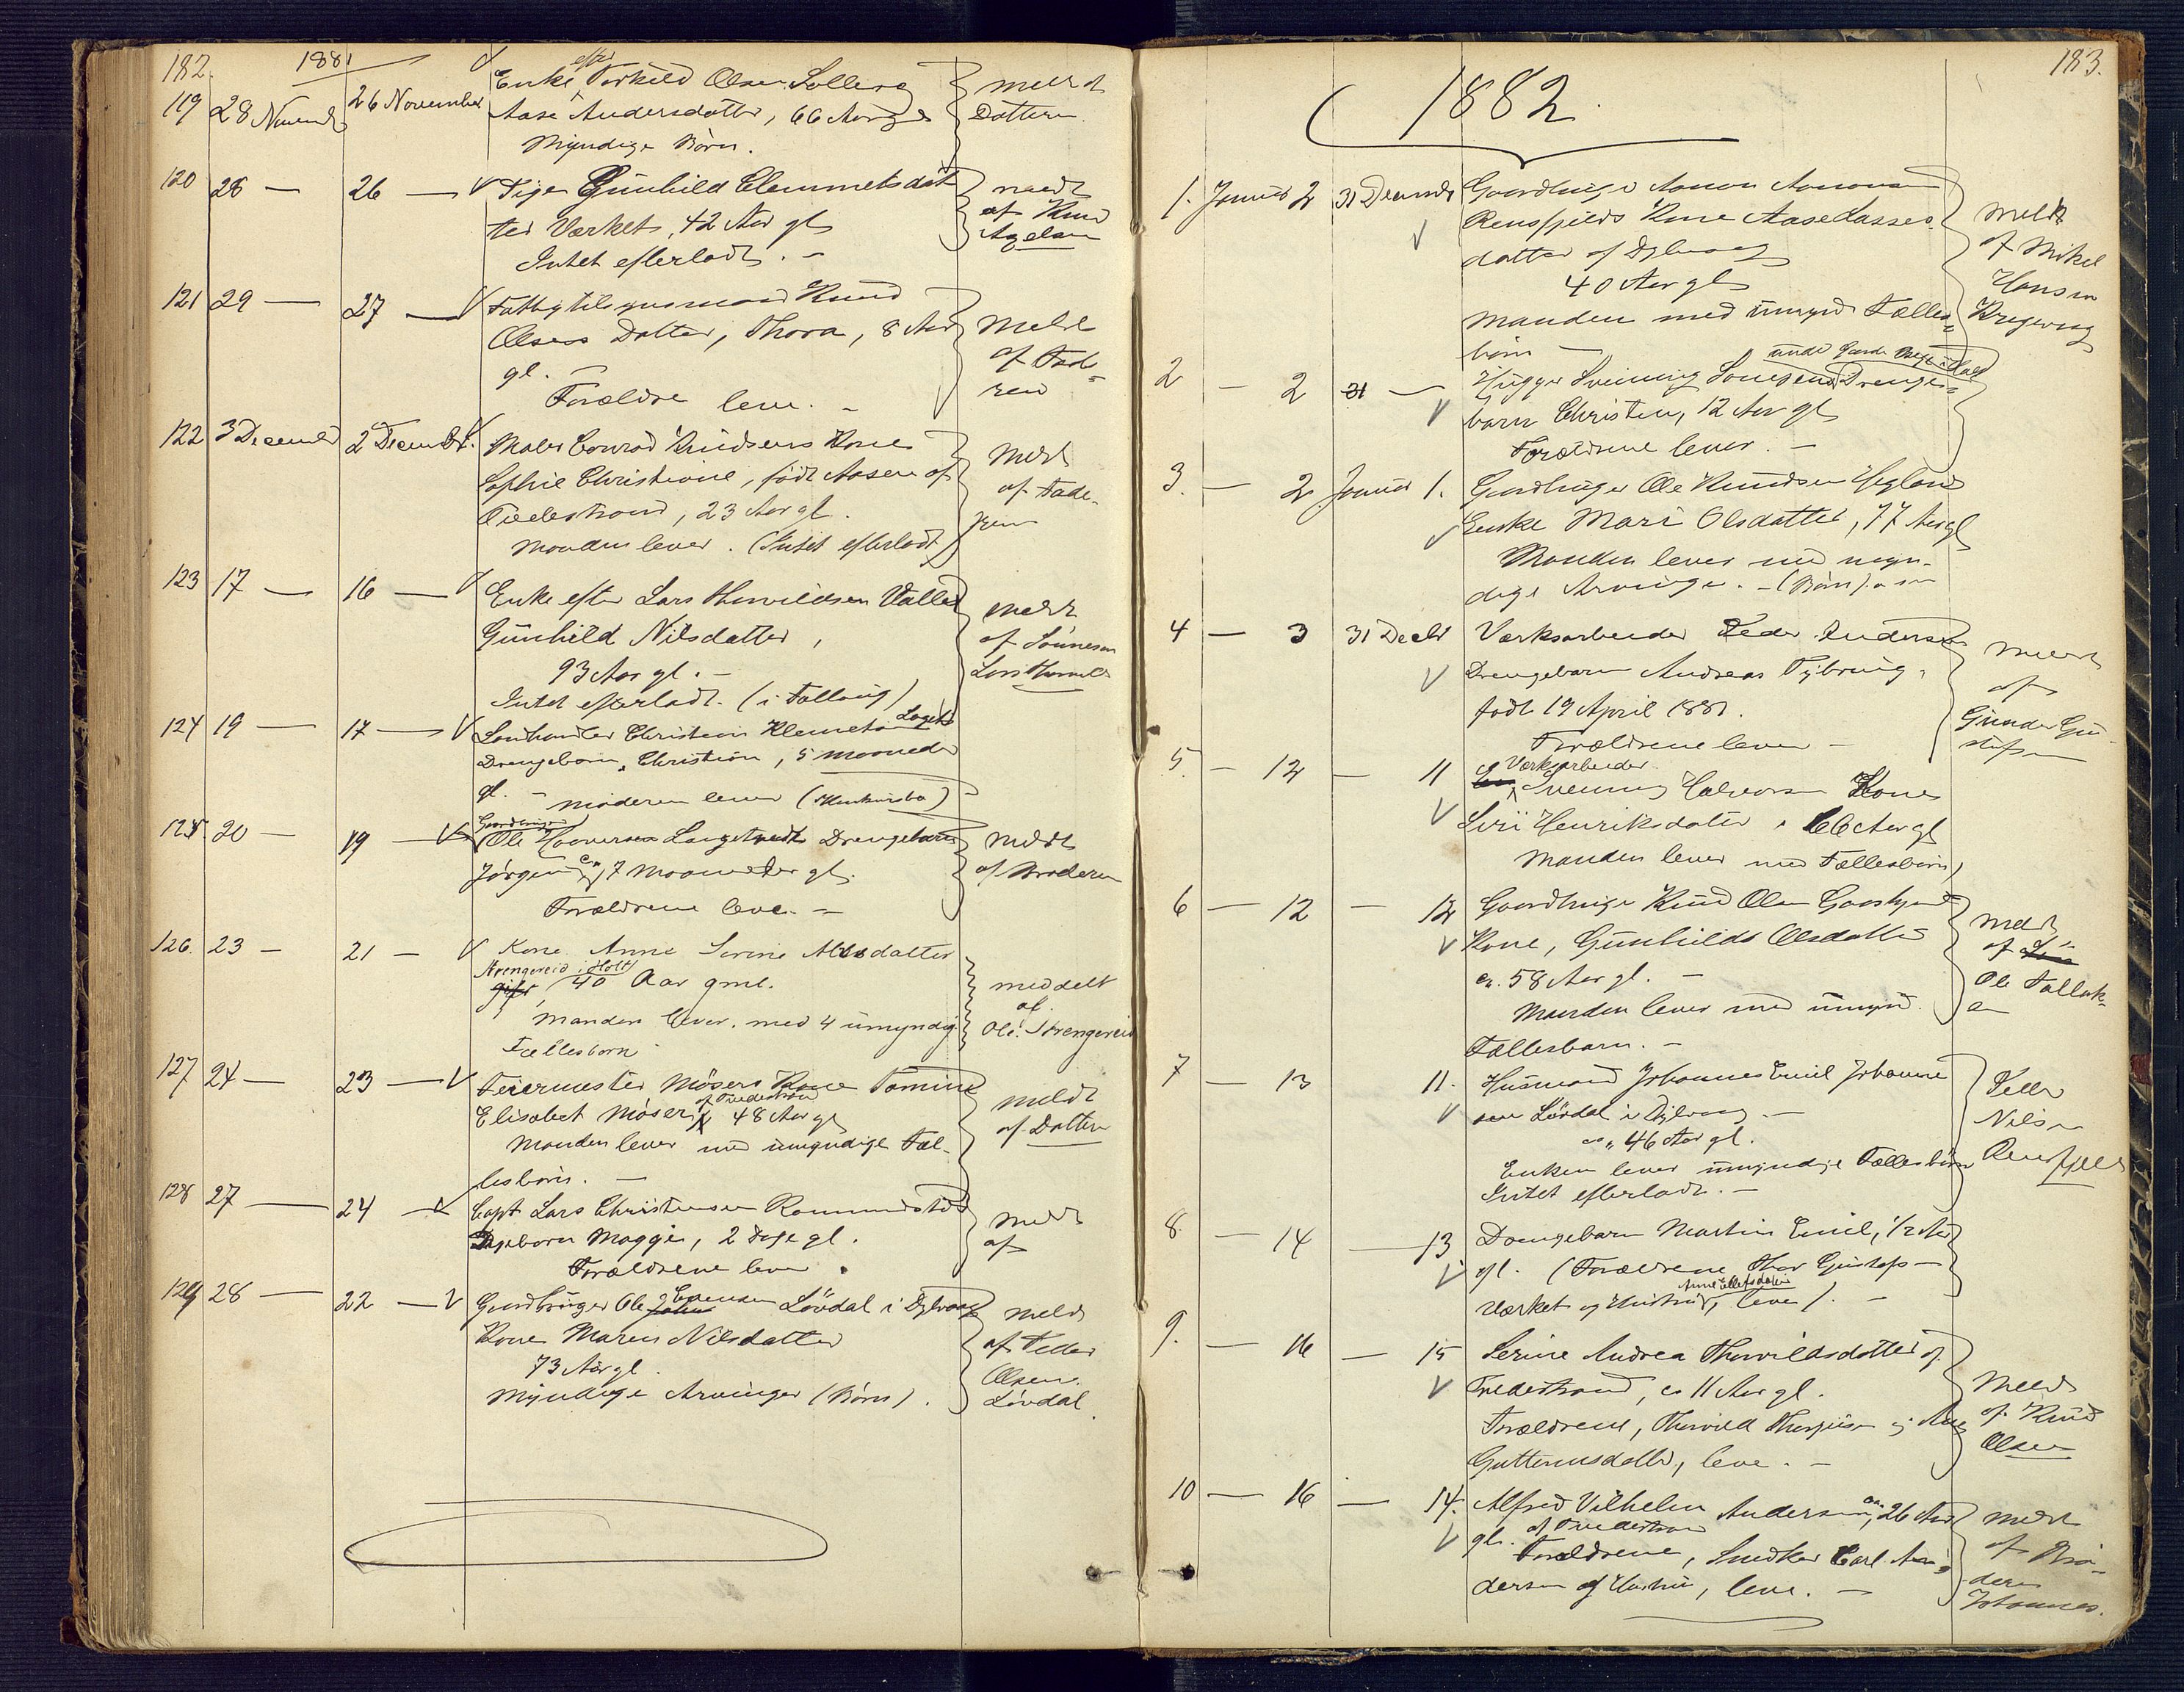 182. 1881
119 28 Novembr 26 November Enke efter Torkild Olsen Solberg
Aase Andersdatter, 66 Aar gl
Myndige Børn.
meldt
Datteren
120 28 — 26 — Pige Gunhild Clemmetsdat-
ter Værket, 42 Aar gl
Intet efterladt. —
meldt
af Knud
Axelsen
121 29 — 27 — Knud
Olsens Datter, Thora, 8 Aar
gl. —
Forældre leve. —
Meldt
af Fade-
ren
122 3 December 2 Decembr. Maler Conrad Knudsens Kone
Sophie Christiane, født Aasen af
Tvedestrand, 23 Aar gl.
Manden lever. (Intet efterladt)
Meldt
af Fade-
ren
123 17 — 16 — Enke efter Lars Thorvildsen
Gunhild Nilsdatter,
93 Aar gl. —
Intet efterladt. (i Fattig)
Meldt
af Sønnesøn
Lars
124 19 — 17 — Christian Klemetsen
Drengebarn, Christian, 5 Maaneder
gl. — Moderen lever
125. 20 — 19 — Gaardbruger
Ole Drengebarn
Jørgen ca, 7 Maaneder gl.
Forældrene leve. —
meldt
af Broderen
126. 23 — 21 — Kone Anne Serine Alesdatter
Strengereid i Holt
gift, 40 Aar gml.
Manden lever. med 4 umyndig
Fællesbørn
meddelt
af
Ole. Strengereid
127 24 — 23 — Feiermester Møsers Kone Tomine
af Tvedestrand
Elisabet Møser, 48 Aar gl
Manden lever med umyndige Fæl-
lesbørn. —
meldt
af Datter
128 27 — 24 — Capt Lars Christensen
Pigebarn Maggie, 2 Dage gl.
Forældrene leve.
meldt
af
129 28 — 22 — Gaardbruger Ole Løvdal i Dybvaag
Kone Maren Nilsdatter
73 Aar gl.
Myndige Arvinger (Børn).
Meldt
af Peder
Olsen
Løvdal.
183.
1882.
1. Januar 2 31 Decembr Gaardbruger Aanon Aanonsen
Rensfjelds Kone Aase Lasses-
datter af Dybvaag
40 Aar gl
Manden med umynd Fælles-
børn —
Meldt
af Mikel
Hansen
2 — 2 31 — Hugger Svenning Drenge-
barn Christen, 12 Aar gl
Forældrene lever. —
3. — 2 Januar 1. Gaardbruger Ole Knudsen
Enke Mari Olsdatter, 77 Aar gl
Manden lever med myn-
dige Arvinger. — (Børn)
4 — 3 31 Decbr Værksarbeider Peder Anderses
Drengebarn Andreas
født 19 April 1881.
Forældrene lever —
Meldt
af
Gunder Gu-
stafsen
5. — 12 — 11 Værksarbeider
Svenning Halvorsen Kone
Siri Henriksdatter, 66 Aar gl
Manden lever med Fællesbørn
6 — 12 — 12 Gaardbruger Knud Olsen
Kone, Gunhilde Olsdatter
ca. 58 Aar gl. —
Manden lever med umynd.
Fællesbarn. —
Meldt
af
Ole
7 — 13 11. Husmand Johannes Emil Johanne
sen Løvdal i Dybvaag —
ca. 46 Aar gl.
Enken lever umyndige Fællesbørn
Intet efterladt. —
Peder
Nilsen
Rensfjeld
8. — 14 — 13 Drengebarn Martin Emil, 1/2 Aar
gl. (Forældrene Thor Gustafs —
Værket og Hustru, leve). —
9. — 16 — 15 Serine Andrea Thorvildsdatter af
Tvedestrand, ca 11 Aar gl.
Forældrene, Thorvild og
Guttormsdatter, leve. —
Meldt
af Knud
Olsen
10 — 16 — 14. Alfred Vilhelm Andersen, ca. 26 Aar
gl. af Tvedestrand
Forældrene, Snedker Carl An-
dersen og Hustru, leve. —
meldt
af Bro-
deren
Johannes.